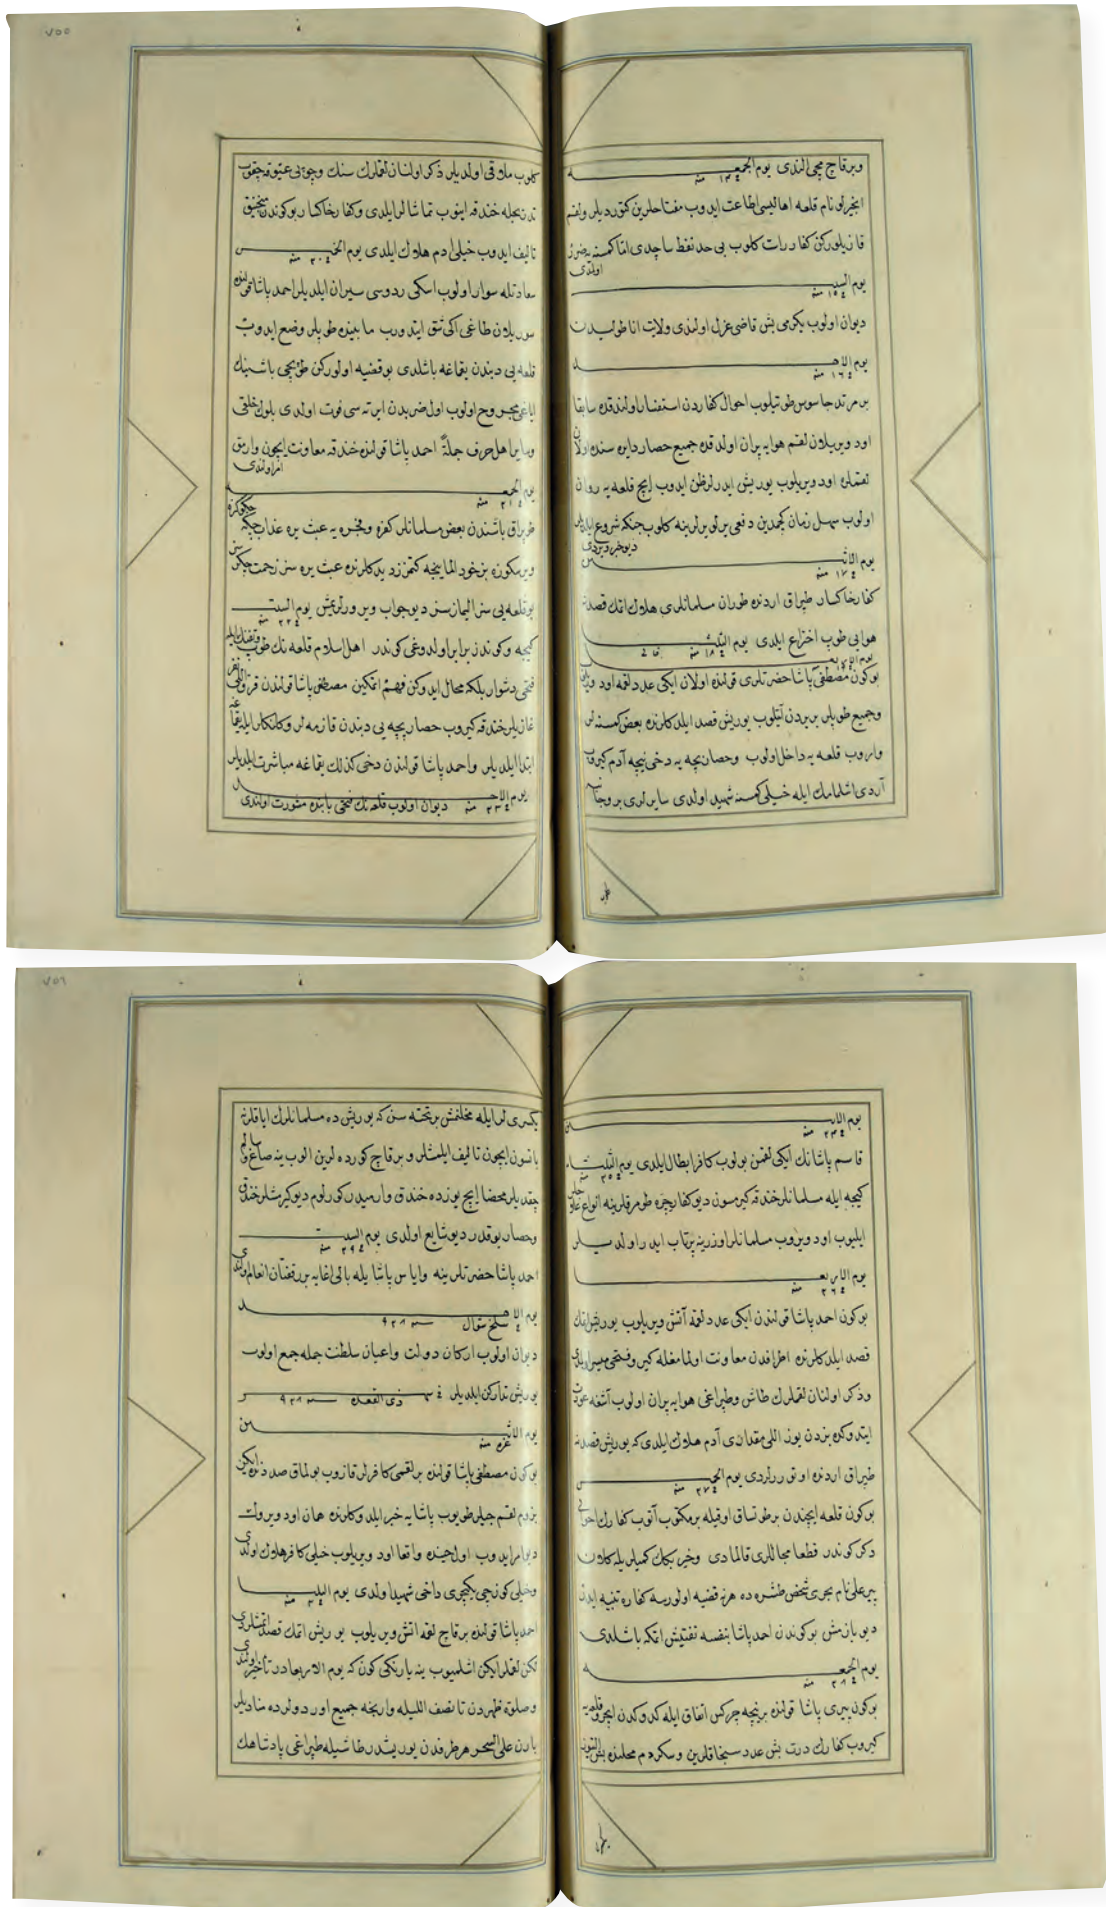 ٧٥٥
وبرقاچ مچی الندی یوم الجمعه
١٤ منه
انجیرلو نام قلعه اهالیسی اطاعت ایدوب مفتاحلرین کتوردیلر ولغم
قازیلورکن کفار راست کلوب بی حد نفط ساچدی اما کمسنه یه ضرر
اولمدی
یوم السبت
١٥ منه
دیوان اولوب یکرمی بش قاضی عزل اولندی ولایت اناطولیدن
یوم الاحد
١٦ منه
بر مرتد جاسوس طوتیلوب احوال کفاردن استفسار اولندقده سابقا
اود ویریلان لغم هوایه پران اولدقده جمیع حصار دایره سنده اولان
لغملره اود ویریلوب یوریش ایدرلر ظن ایدوب ایچ قلعه یه روان
اولوب سهل زمان کچمدین دفعی یرلو یرلرینه کلوب جنکه شروع ایلدیلر
دیو خبر ویردی
یوم الاثنین
١٧ منه
کفار خاکسار طپراق اردنده طوران مسلمانلری هلاک اتمک قصدینه
هوایی طوپ اختراع ایلدی یوم الثلثا
١٨ منه
یوم الاربعا
بوکون مصطفی پاشا حضرتلری قولنده اولان ایکی عدد لغمه اود ویریلوب
وجمیع طوپلر بر یردن آتیلوب یوریش قصد ایلدکلرنده بعض کمسنه لر
واروب قلعه یه داخل اولوب وحصار بچه یه دخی نیچه آدم کیروب
آردی اشلمامک ایله خیلی کمسنه شهید اولدی سایرلری بروجانبه
کلوب ملاقی اولدیلر ذکر اولنان لغملرک سنک وچوبی عتیق قچقوب
تدریجیله خندقه اینوب تماشالر ایلدی وکفار خاکسار بوکوندن منجنیق
تالیف ایدوب خیلی ادم هلاک ایلدی یوم الخمیس
٢٠ منه
سعادتله سوار اولوب اسکی ردوسی سیران ایلدیلر احمد پاشا قولنده
سوریلان طاغی اکی شق ایتدورب مابینده طوپلر وضع ایدوب
قلعه یی دیبندن یقماغه باشلدی بو قضیه اولورکن طوپچی باشینک
ایاغی مجروح اولوب اول ضربدن ایرته سی فوت اولدی بلوک خلقی
وسایر اهل حرف جملة احمد پاشا قولنده خندقه معاونت ایچون وارمق
امر اولندی
یوم الجمعه
٢١ منه
طپراق باشندن بعض مسلمانلر کفره وفجره یه عبث یره عذاب چکه
ویرمکوزه بز خود الماینجه کتمزز دیدکلرنده عبث یره سز زحمت چکرسز
بو قلعه یی سز الیمازسز دیو جواب ویررلریمش یوم السبت
٢٢ منه
کیجه وکوندز برابر اولدوغی کوندر اهل اسلام قلعه نک طوپ وتفنک ایله
فتحی دشوار بلکه محال ایدوکن فهم اتمکین مصطفی پاشا قولندن
غازیلر خندقه کیروب حصار بچه یی دیبندن قازمه لر وکلنکلر ایله یقماغه
ابتدا ایلدیلر واحمد پاشا قولندن دخی کذلک یقماغه مباشرت ایلدیلر
یوم الاحد
٢٣ منه دیوان اولوب قلعه نک فتحی بابنده مشورت اولندی
٧٥٦
یوم الاثنین
٢٤ منه
قاسم پاشانک ایکی لغمن بولوب کافر ابطال ایلدی یوم الثلثا
٢٥ منه
کیجه ایله مسلمانلر خندقه کیرمسون دیو کفار فجره طومرقلرینه انواع
ایلیوب اود ویروب مسلمانلر اوزرینه پرتاب ایدر اولدیلر
یوم الاربعا
٢٦ منه
بوکون احمد پاشا قولندن ایکی عدد لغمه آتش ویریلوب یوریش اتمک
قصد ایلدکلرنده اطرافدن معاونت اولمامغله کیرو فتحی میسر اولمدی
وذکر اولنان لغملرک طاش وطپراغی هوایه پران اولوب آشغه عودت
ایتدوکده بزدن یوز اللی مقداری آدم هلاک ایلدی که یوریش قصدینه
طپراق اردنده اوتوررلردی یوم الخمیس
٢٧ منه
بوکون قلعه ایچندن بر طوتساق اوقیله بر مکتوب آتوب کفارک احوالی
دکرکوندر قطعا مجاللری قالمادی وخیربکک کمیلریله کلان
پیر علی نام بحری شخص طشره ده هر نه قضیه اولورسه کفاره تنبیه ایدر
دیو یازمش بوکوندن احمد پاشا بنفسه تفتیش اتمکه باشلدی
یوم الجمعه
٢٨ منه
بوکون پیری پاشا قولنده برنیچه چرکس اتفاق ایله کدوکدن ایچرو قلعه یه
کیروب کفارک درت بش عدد سنجاقلرین وسکردم محلنده
یکسری لر ایله مخلنمش بر تخته سن که یوریش ده مسلمانلرک ایاقلرینه
باتسون ایچون تالیف ایلمشلر و برقاچ کورده لرین الوب ینه صاغ وسالم
چقدیلر محضا ایچ یوزده خندق وارمیدر کورلوم دیو کیرمشلر خندق
وحصار بوقدر دیو شایع اولدی یوم السبت
٢٩ منه
احمد پاشا حضرتلرینه وایاس پاشایله بالی اغایه برر قفتان انعام اولندی
یوم الاحد
سلخ شوال سنه ٩٢٨
دیوان اولوب ارکان دولت واعیان سلطنت جمله جمع اولوب
یوریش تدارکن ایلدیلر فی شهر ذی القعده سنه ٩٢٨
یوم الاثنین
غره منه
بوکون مصطفی پاشا قولنده بر لغمی کافرلر قازوب بولماق صددنده ایکن
بزوم لغمجیلر طویوب پاشایه خبر ایلدوکلرنده همان اود ویرولسون
دیو امر ایدوب اول حینده واقعا اود ویریلوب خیلی کافر هلاک اولدی
وخیلی کونجی یکیچری داخی شهید اولدی یوم الثلثا
٢ منه
احمد پاشا قولنده برقاچ لغمه اتش ویریلوب یوریش اتمک قصد اتمشلردی
لکن لغملر ایکن اشلمیوب ینه یارنکی کون که یوم الاربعادر تأخیر اولندی
وصلوة ظهردن تا نصف اللیله وارنجه جمیع اوردولرده منادیلر
یارن علی السحر هر طرفدن یوریشدر طاشیله طپراغی پادشاهک